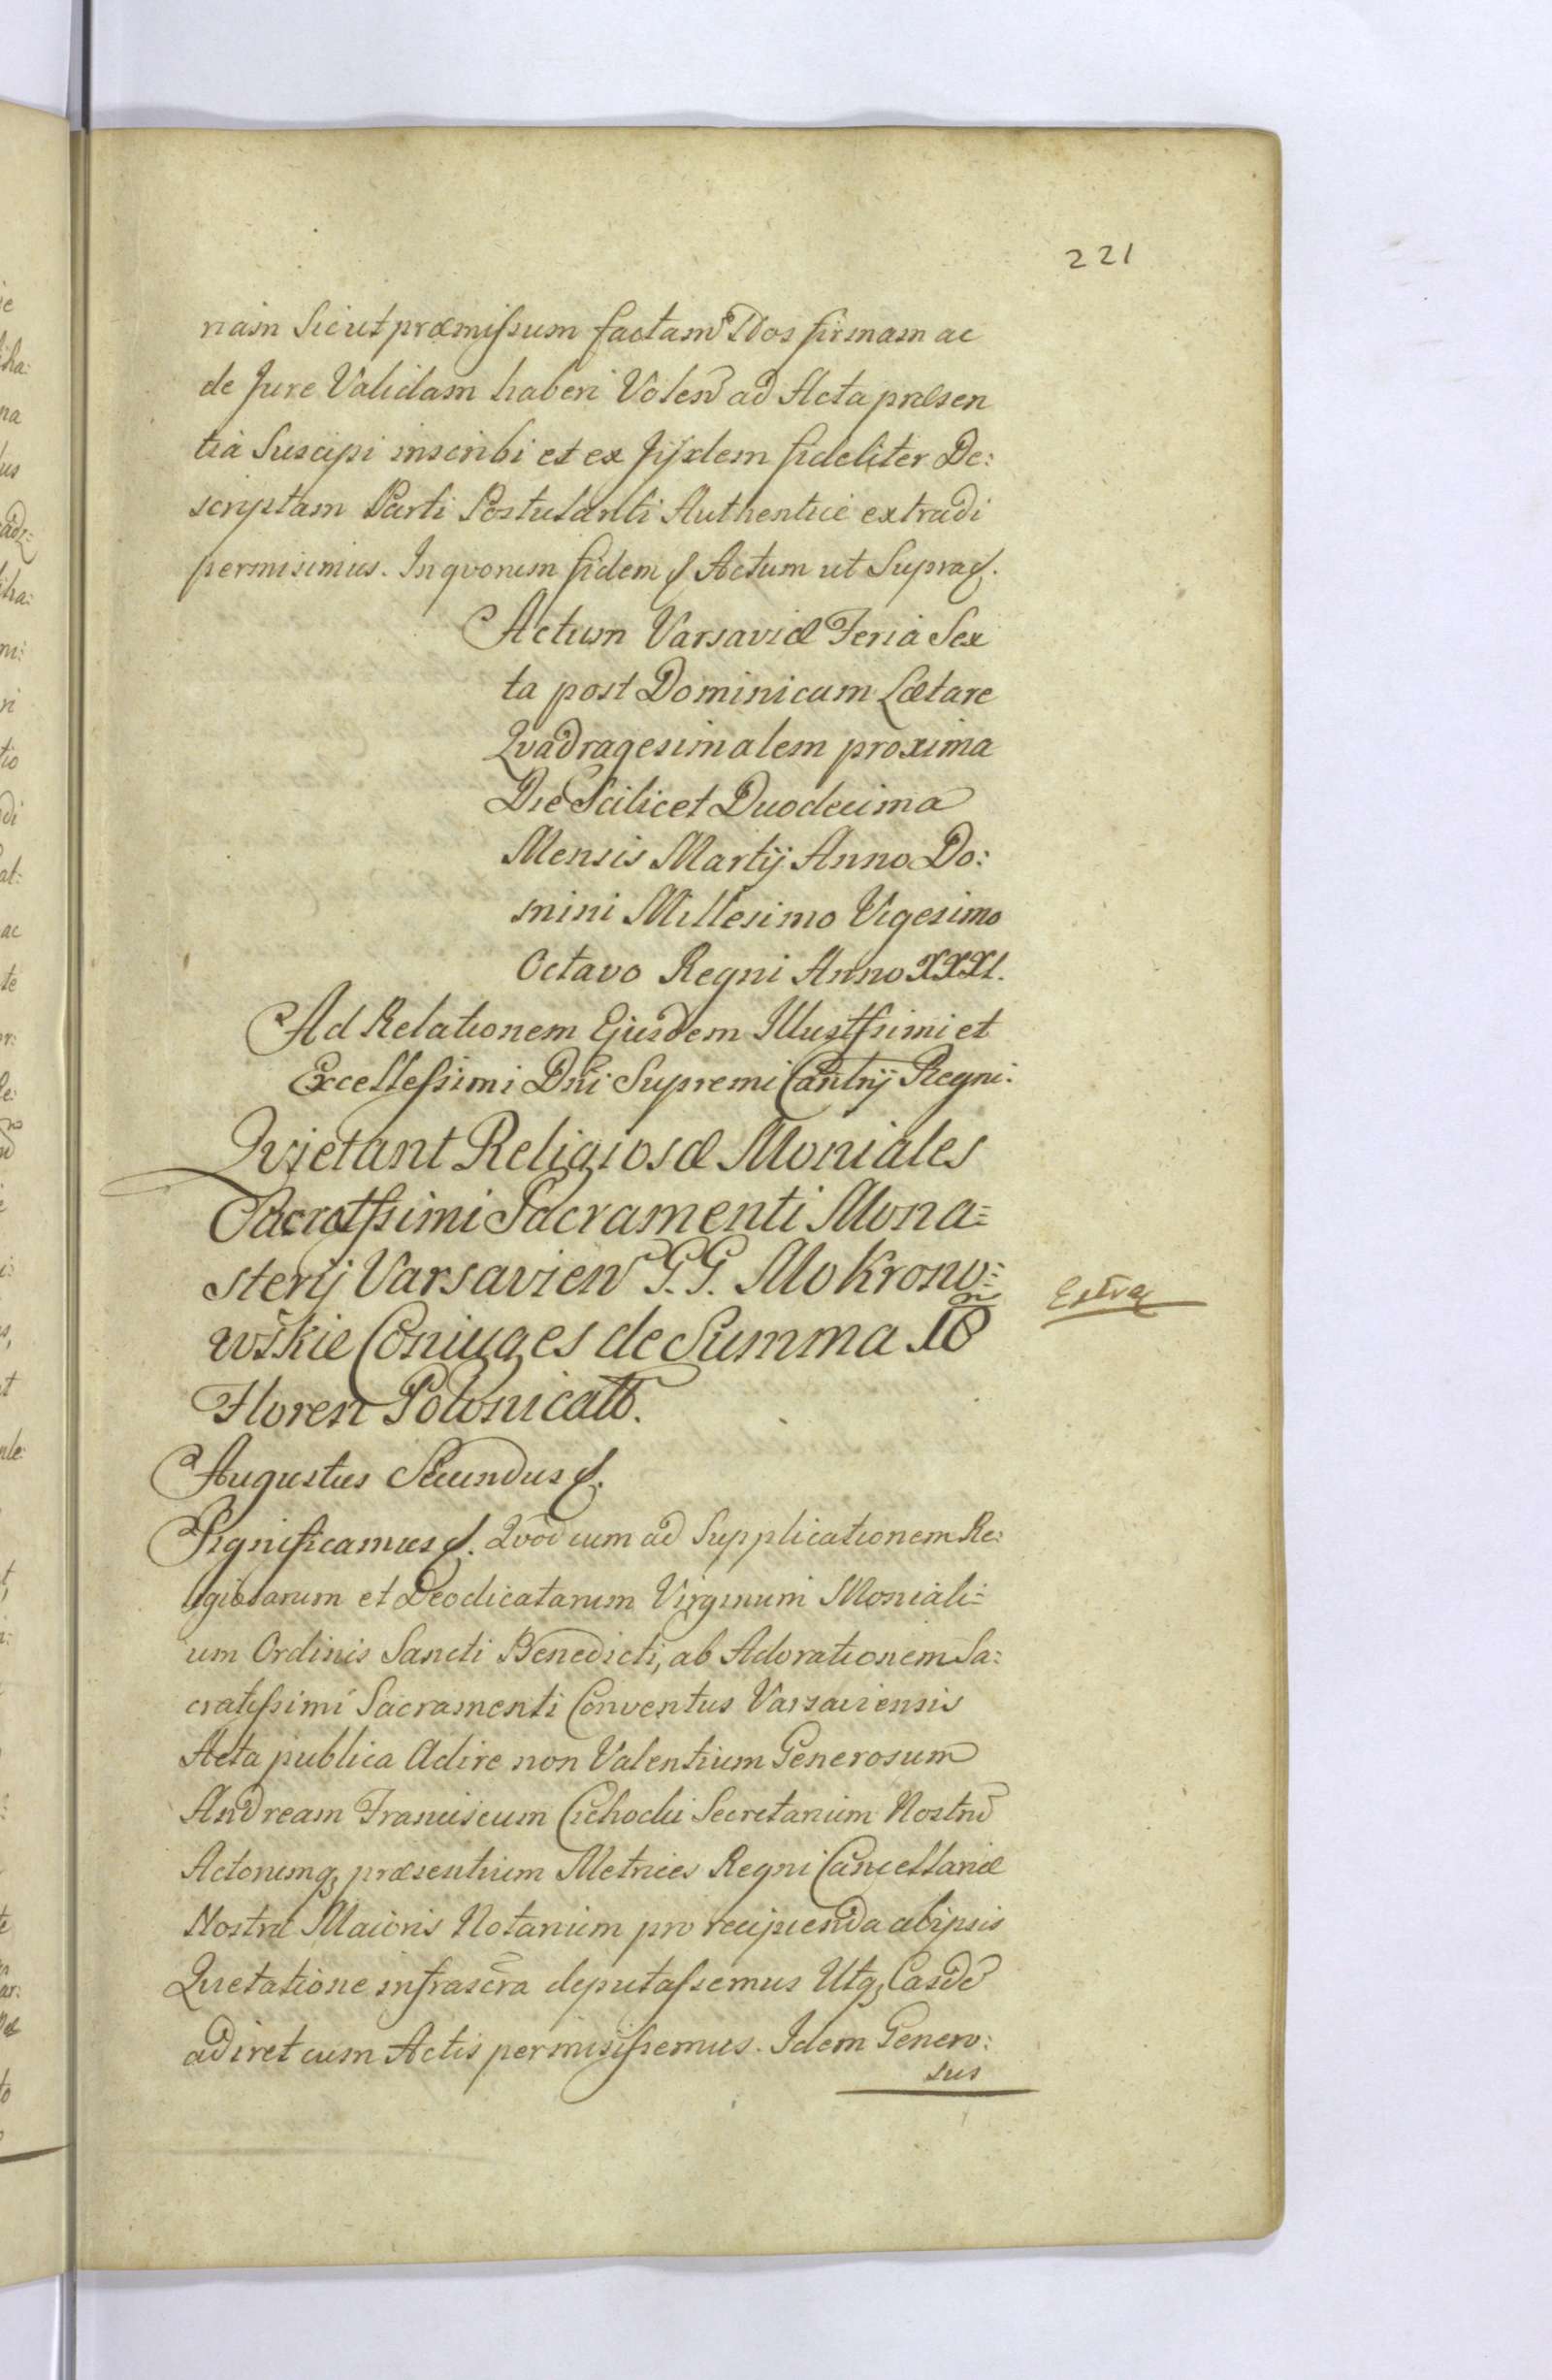 221
nam Sicut præmissum factam Nos firmam ac
de Jure Validam haberi Volen ad Acta præsen
tia Suscipi inscribi et ex Jijsdem fideliter De:
scriptam Parti Postulanti Authentice extradi
permisimus. In qvorum fidem &. Actum ut Supra &.
Actum Varsaviæ Feria Sex
ta post Dominicam Lætare
Qvadragesimalem proxima
Die Scilicet Duodecima
Mensis Martij Anno Do:
mini Millesimo Vigesimo
Octavo Regni Anno XXXI.
Ad Relationem Ejusdem Illustssimi et
Excellessimi Dni Supremi Canrÿ Regni.
Qvietant Religiosæ Moniales
Sacratssimi Sacramenti Mona=
sterij Varsavien G.G. Mokrono=
wskie Coniuges de Summa 10
m
Extra
Floren Polonicall.
Augustus Secundus &.
Significamus &. Qvod cum ad Supplicationem Re:
ligiosarum et Deodicatarum Virginum Moniali=
um Ordinis Sancti Benedicti, ab Adorationem Sa:
cratissimi Sacramenti Conventus Varsaviensis
Acta publica Adire non Valentium Generosum
Andream Franciscum Cichocki Secretarium Nostrū
Actorumq; præsentium Metrices Regni Cancellariæ
Nostræ Maioris Notarium pro recipienda ab ipsis
Qvietatione infrascra deputassemus Utq; Easdē
adiret cum Actis permisissemus. Idem Genero:
sus